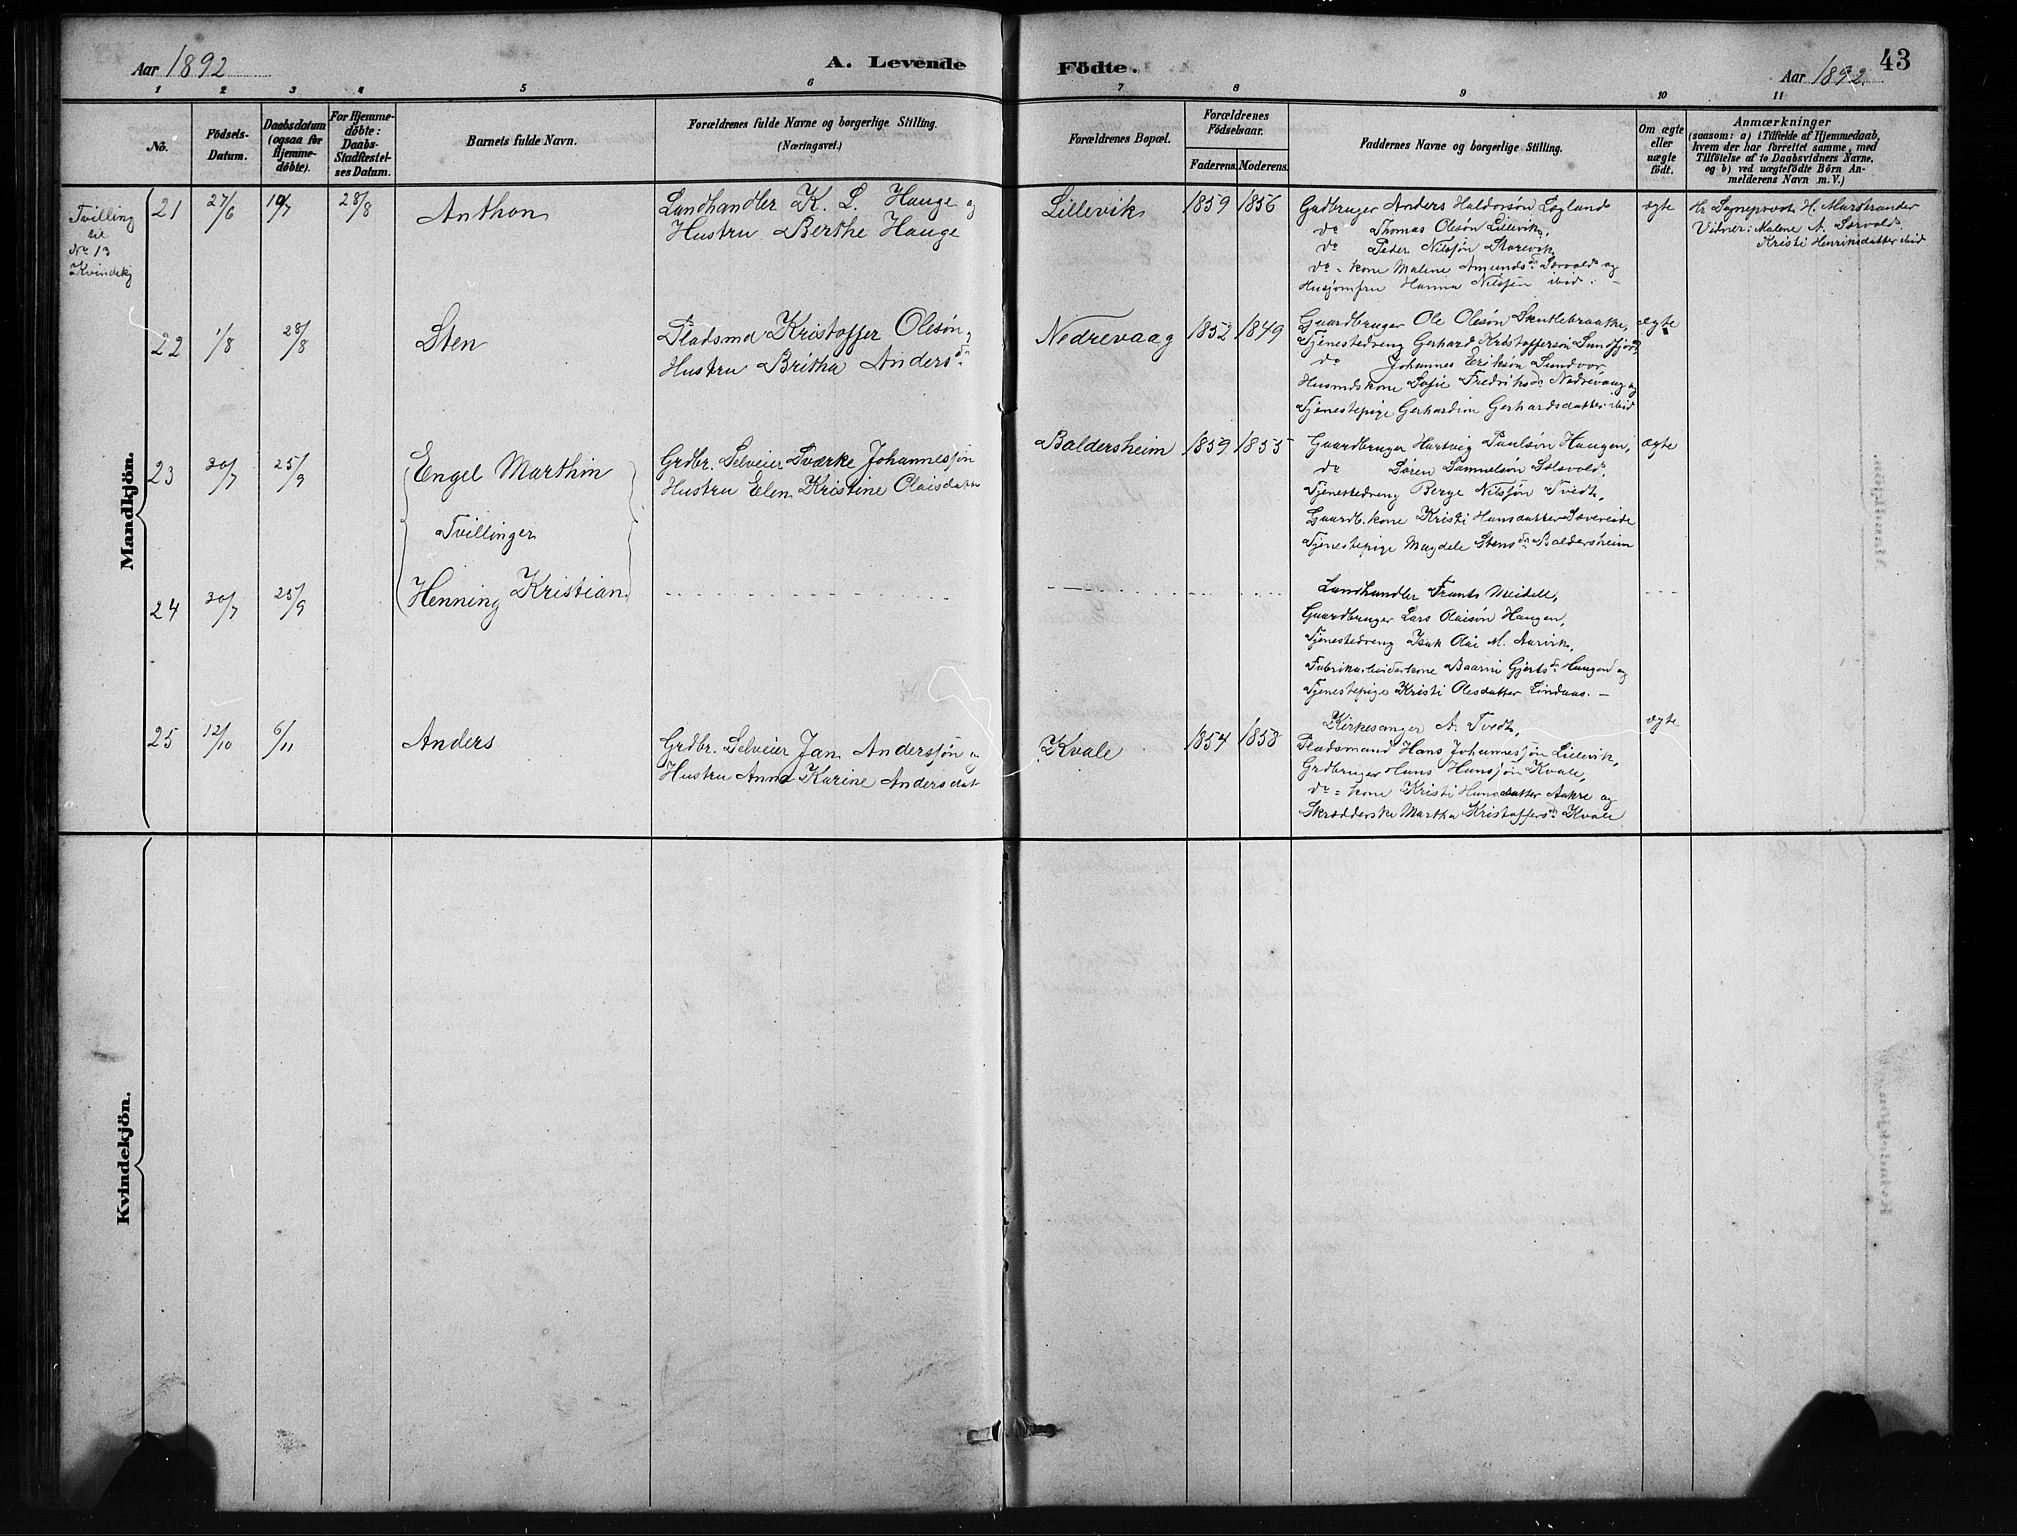 Aar 1892
A. Levende
Födte.
43
Aar 1892
1 2 3 4 5 6 7 8 9 10 11
No.
Födsels-
Datum.
Daabsdatum
(ogsaa for
Hjemme-
döbte).
For Hjemme-
döbte:
Daabs-
Stadfæstel-
ses Datum.
Barnets fulde Navn.
Forældrenes fulde Navne og borgerlige Stilling.
(Næringsvei.)
Forældrenes Bopæl.
Forældrenes
Födselsaar.
Faderens. Moderens.
Faddernes Navne og borgerlige Stilling.
Om ægte
eller
uægte
födt.
Anmærkninger
(saasom: a) i Tilfælde af Hjemmedaab,
hvem der har forrettet samme, med
Tilföielse af to Daabsvidners Navne,
og b) ved uægtefödte Börn An-
melderens Navn m. V.)
Mandkjön.
Tvilling
til
No 13
Kvindekj
21 27/6 10/7 28/8
Anthon
Landhandler K. L. Hauge og
Hustru Berthe Hauge
Lillevik 1859 1856
Gadbruger Anders Haldorsön Løgland
do Thomas Olesön Lillevik,
do Peder Nilssön Storevik
do = kone Malene Amundsdr Sørvold og
Husjomfru Hanna Nilssen ibid. –
ægte
Hr Sogneprovst H. Marstrander
Vidner: Malene A. Sørvold
Kristi Henriksdatter ibid
22 1/8 28/8
Sten
Pladsmd Kristoffer Olesön,
Hustru Britha Andersdr
Nedrevaag 1852 1849
Gaardbruger Ole Olesön Skutlebraatke,
Tjenestedreng Gerhard Kristoffersön Sundfjord,
do Johannes Eriksön Sundvor,
Husmdskone Sofie Fredriksdr Nedrevaag og
Tjenestepige Gerhardine Gerhardsdatter ibid
ægte
23 30/7 25/9
Engel Marthin
Tvillinger
Grdbr. Selveier Sværke Johannessön
Hustru Elen Kristine Olaisdatter
Baldersheim 1859 1855
Gaardbruger Hartvig Paulsön Haugen,
do Sören Samuelsön Sölsvold,
Tjenestedreng Berge Nilssön Tvedt,
Gaardb. kone Kristi Hansdatter Sævereide
Tjenestepige Magdele Stensdr Baldersheim
ægte
24 30/7 25/9
Henning Kristian
Landhandler Frants Meidell,
Gaardbruger Lars Olaisön Haugen,
Tjenestedreng Isak Olai M. Aarvik,
Fabrikarbeiderkone Baarni Gjertsdr Haugen og
Tjenestepige Kristi Olesdatter Lindaas. –
25 12/10 6/11
Anders
Grdbr. Selveier Jan Anderssön og
Hustru Anna Karine Andersdat
Kvale 1854 1858
Kirkesanger A. Tvedt,
Pladsmand Hans Johannessön Lillevik,
Grdbruger Hans Hanssön Kvale,
do = kone Kristi Hansdatter Aakre og
Skrædderske Martha Kristoffersdr Kvale
ægte
Kvindekjön.